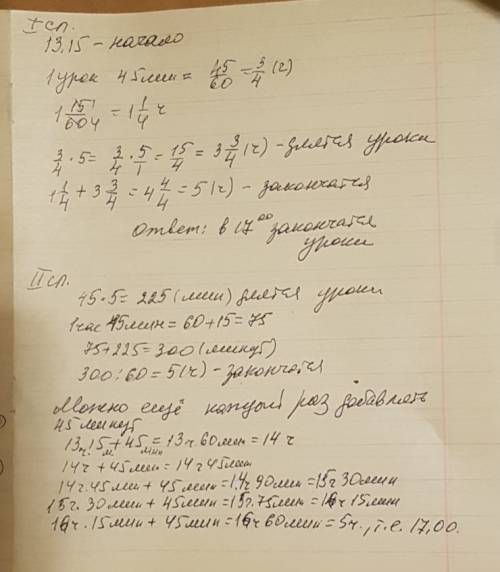 I сп.
13.15 - начало
1 урок 45 мин = 45/60 = 3/4 (ч)
1 15/60 = 1 1/4 ч
3/4 · 5 = 3/4 · 5/1 = 15/4 = 3 3/4 (ч) - длятся уроки
1 1/4 + 3 3/4 = 4 4/4 = 5 (ч) - закончатся
Ответ: в 17⁰⁰ закончатся
уроки
II сп.
45·5 = 225 (мин) длятся уроки
1 час 15 мин = 60+15 = 75
75+225 = 300 (минут)
300:60 = 5 (ч) - закончатся
Можно ещё каждый раз добавлять
45 минут
13ч 15м + 45 мин = 13ч 60мин = 14 ч
14ч + 45мин = 14ч 45мин
14ч.45мин + 45мин = 14ч 90мин = 15ч 30мин
15ч. 30мин + 45мин = 15ч.75мин = 16ч 15мин
16ч. 15мин + 45мин = 16ч 60мин = 5ч., т.е. 17.00.